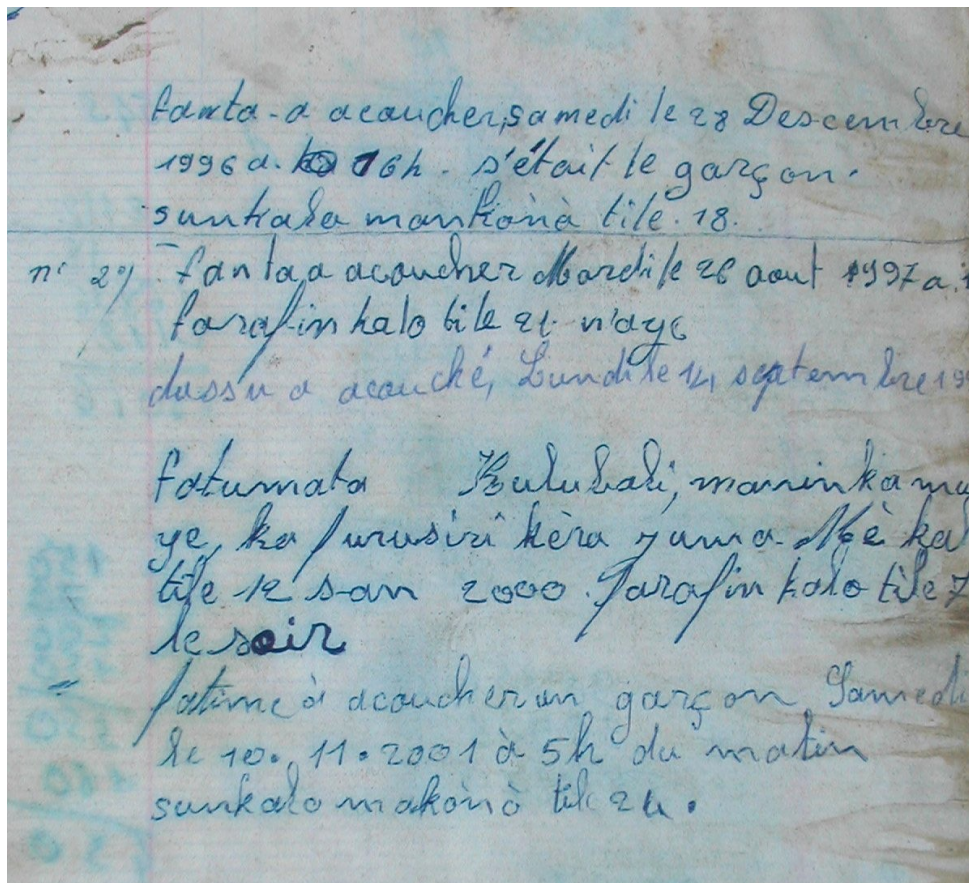 fanta-a acaucher, samedi le 28 Descembre
1996 a. 16h. s'était le garçon.
sunkalo mankònò tile. 18.
n° 2°/ fanta a acoucher Mardi le 26 aout 1997 a.
farafin kalo tile 21 n'aye
dassu a acouché, Lundi le 14, septembre 19
fatumata Kulubali, maninka mu
ye, ka furusiri kèra zuma. Mè kal
tile 12 san 2000. farafin kalo tile 7
le soir
fatime à acoucher un garçon Samedi
le 10. 11. 2001 à 5h du matin
sunkalo makònò tile 24.